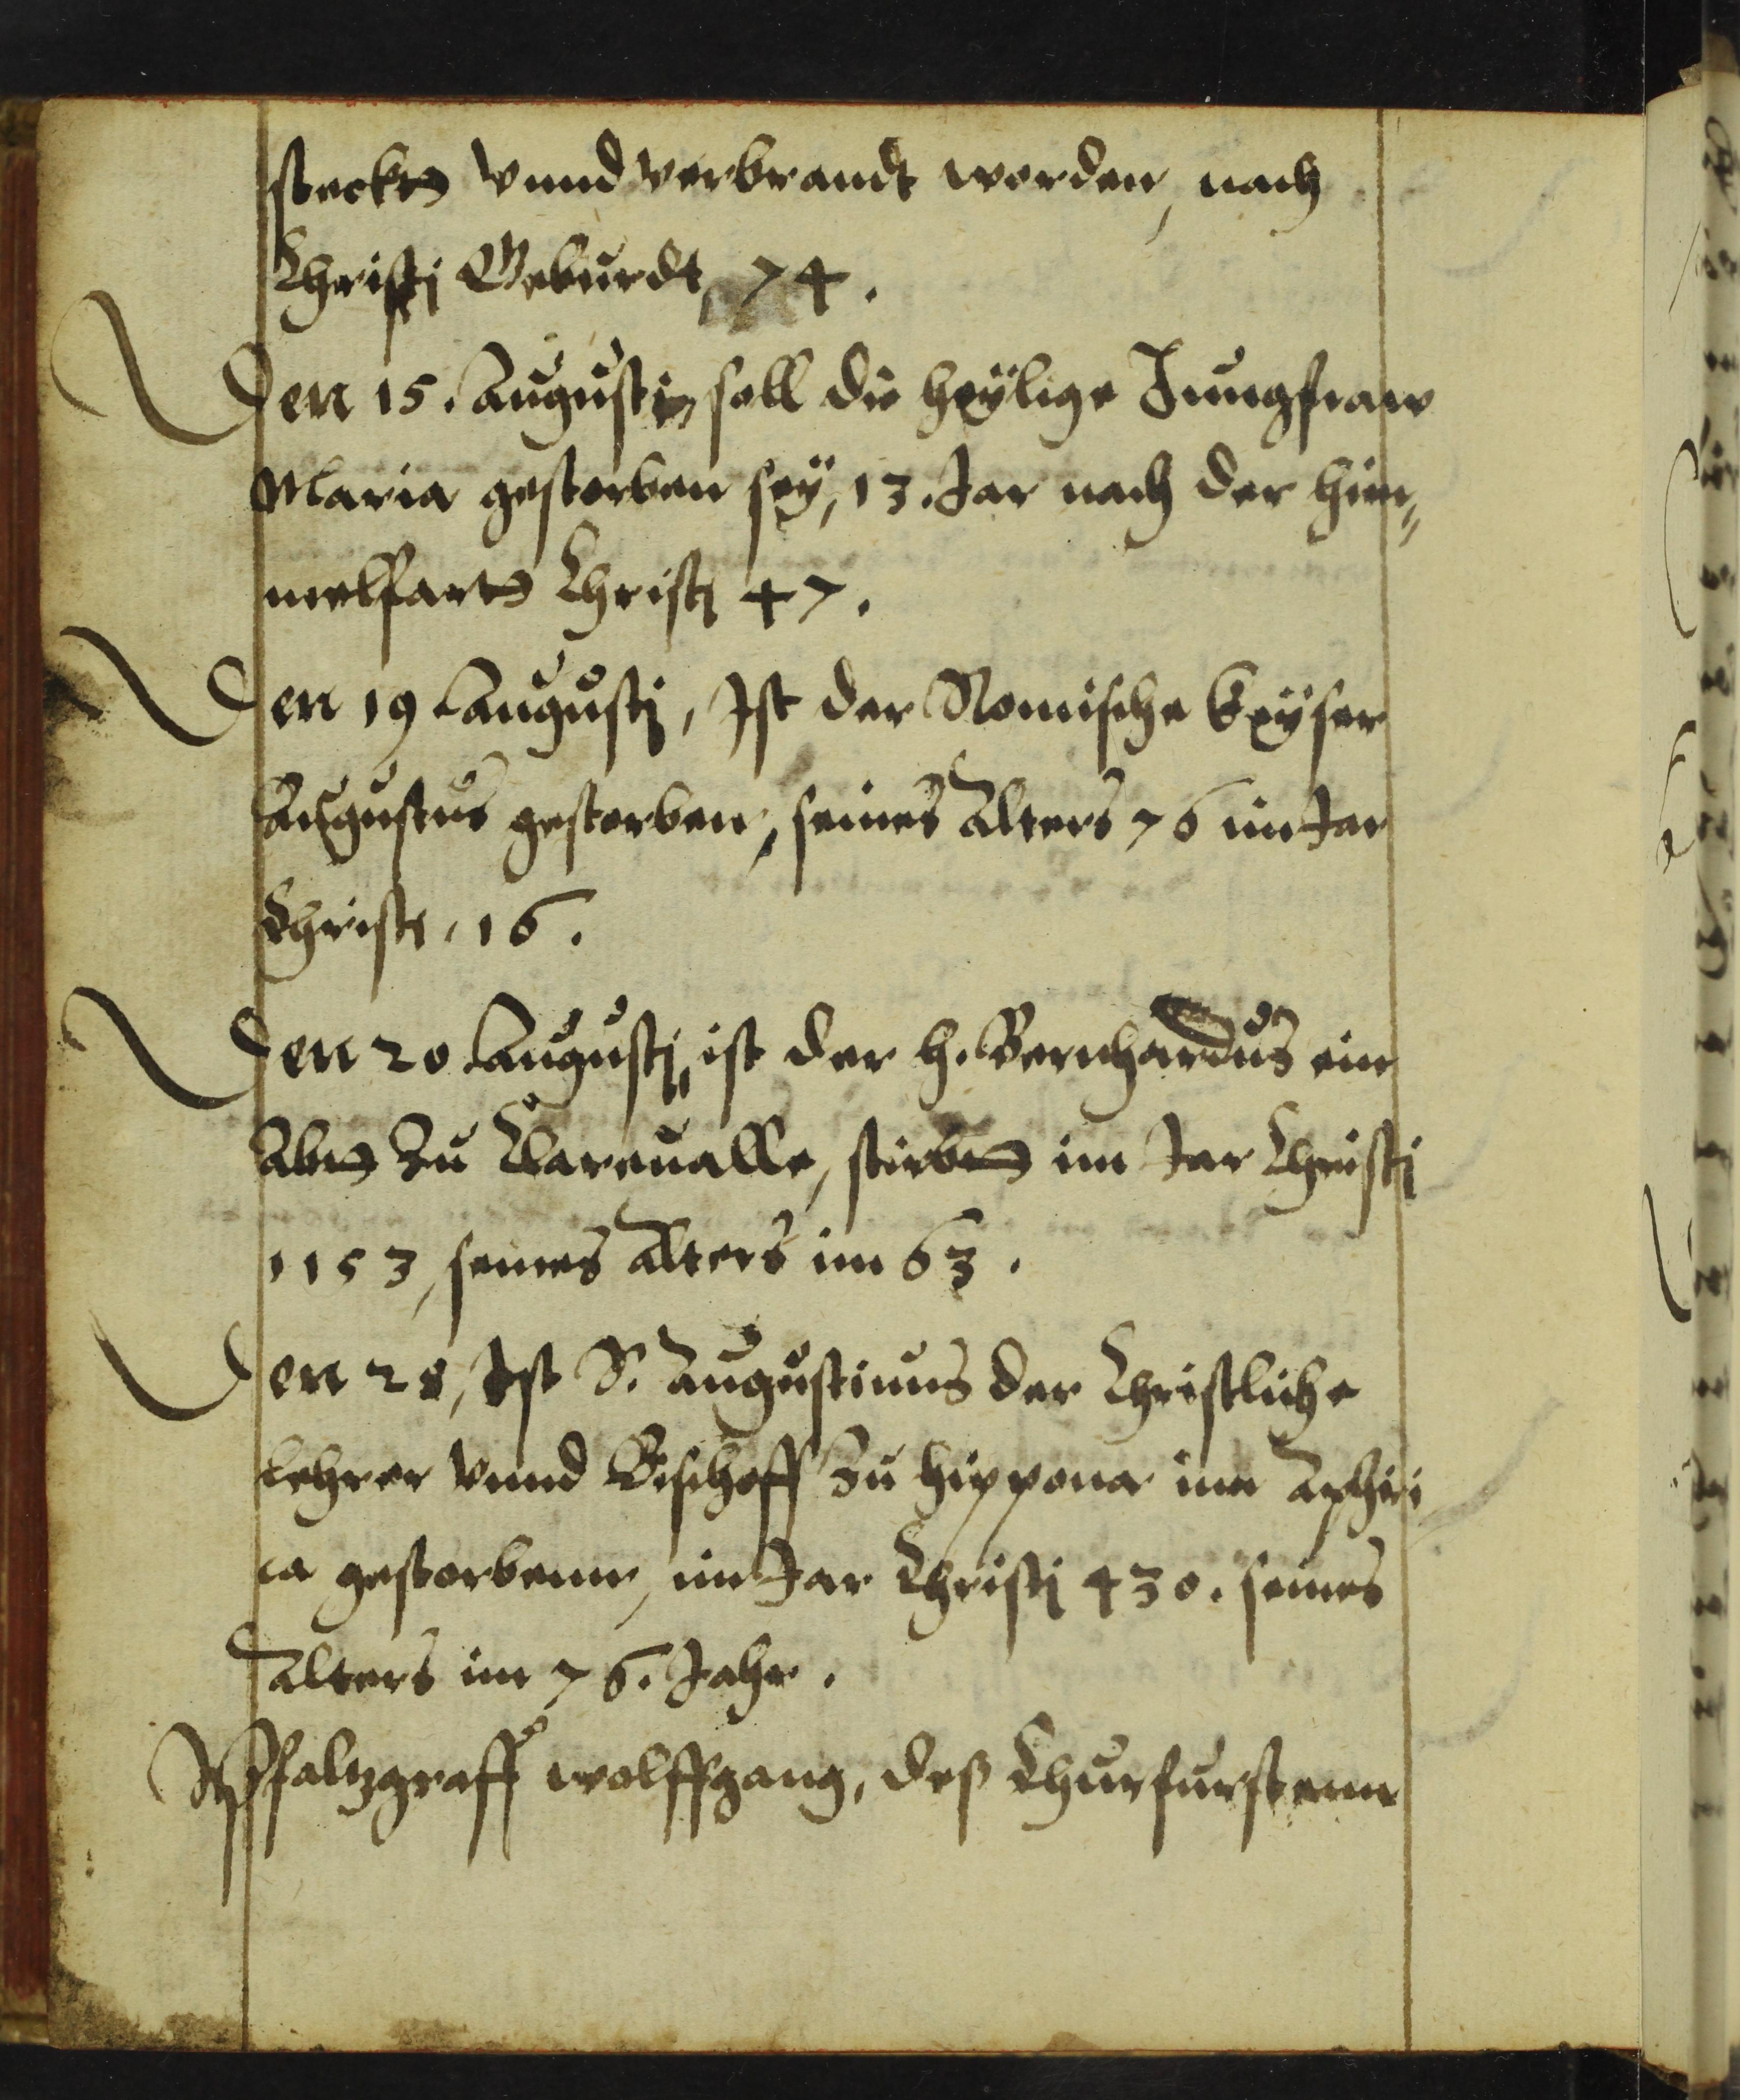 steckt vnnd verbrandt worden, nach
Christj Geburdt, 74.
Den 15. Augustj soll die heÿlige Jungfraw
Maria gestorben seÿ, 13. Jar nach der him„
melfart Christj 47.
Den 19 Augustj, Ist der Romische Keÿser
Augustus gestorben, seines Alters 76 im Jar
Christi, 16.
Den 20 Augustj, ist der H. Bernhardus ein
Abt zu Clareualle, stirbt im Jar Christj
1153, seines Alters im 63.
Den 28, Ist S. Augustinus der Christliche
Lehrer vnnd Bischoff zu Hippona inn Aphri
ca gestorbenn, im Jar Christj 430. seines
Alters im 76. Jahr.
Pfaltzgraff Wolffgang, deß Churfurstenn